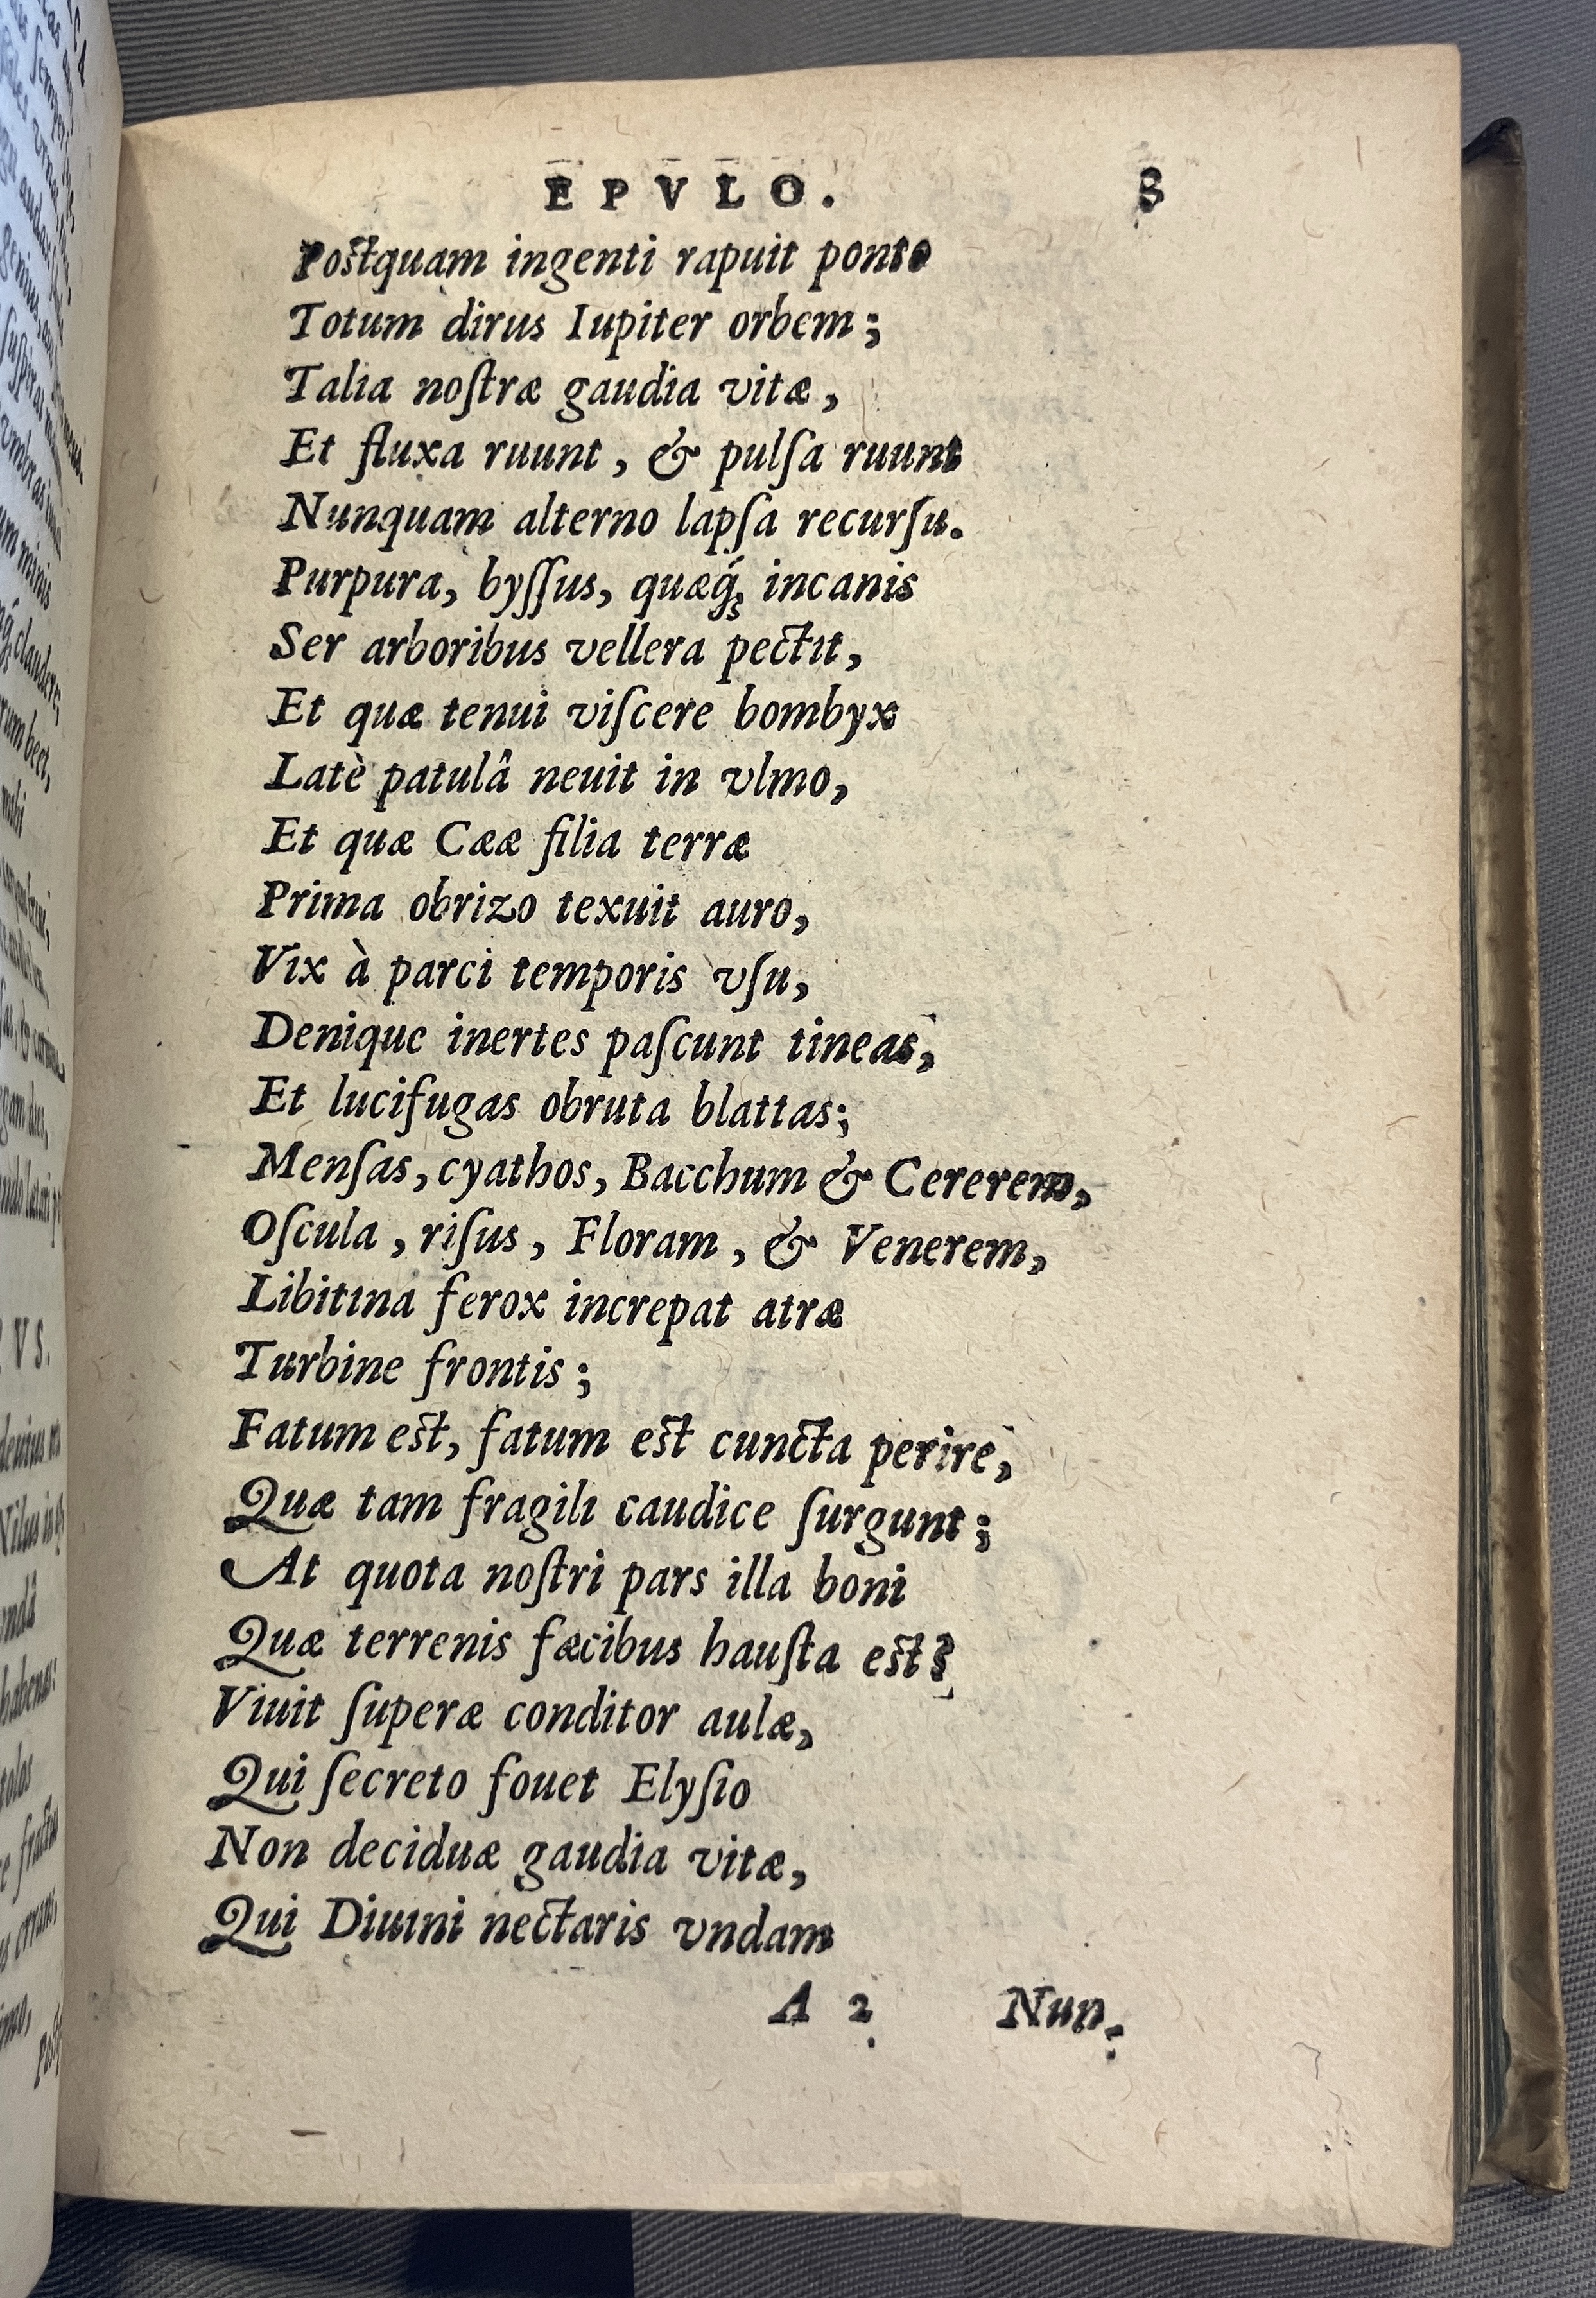 EPVLO. 3
Postquam ingenti rapuit ponto
Totum dirus Iupiter orbem;
Talia noſtræ gaudia vitæ,
Et fluxa ruunt, & pulſa ruunt
Nunquam alterno lapſa recurſu.
Purpura, byſſus, quæq́; incanis
Ser arboribus vellera pectit,
Et quæ tenui viſcere bombyx
Latè patulâ neuit in vlmo,
Et quæ Cææ filia terræ
Prima obrizo texuit auro,
Vix à parci temporis vſu,
Denique inertes paſcunt tineas,
Et lucifugas obruta blattas;
Menſas, cyathos, Bacchum & Cererem,
Oſcula, riſus, Floram, & Venerem,
Libitina ferox increpat atræ
Turbine frontis;
Fatum est, fatum est cuncta perire,
Quæ tam fragili caudice ſurgunt;
At quota noſtri pars illa boni
Quæ terrenis fæcibus hauſta est?
Viuit ſuperæ conditor aulæ,
Qui ſecreto fouet Elyſio
Non deciduæ gaudia vitæ,
Qui Diuini nectaris vndam
A 2 Nun-